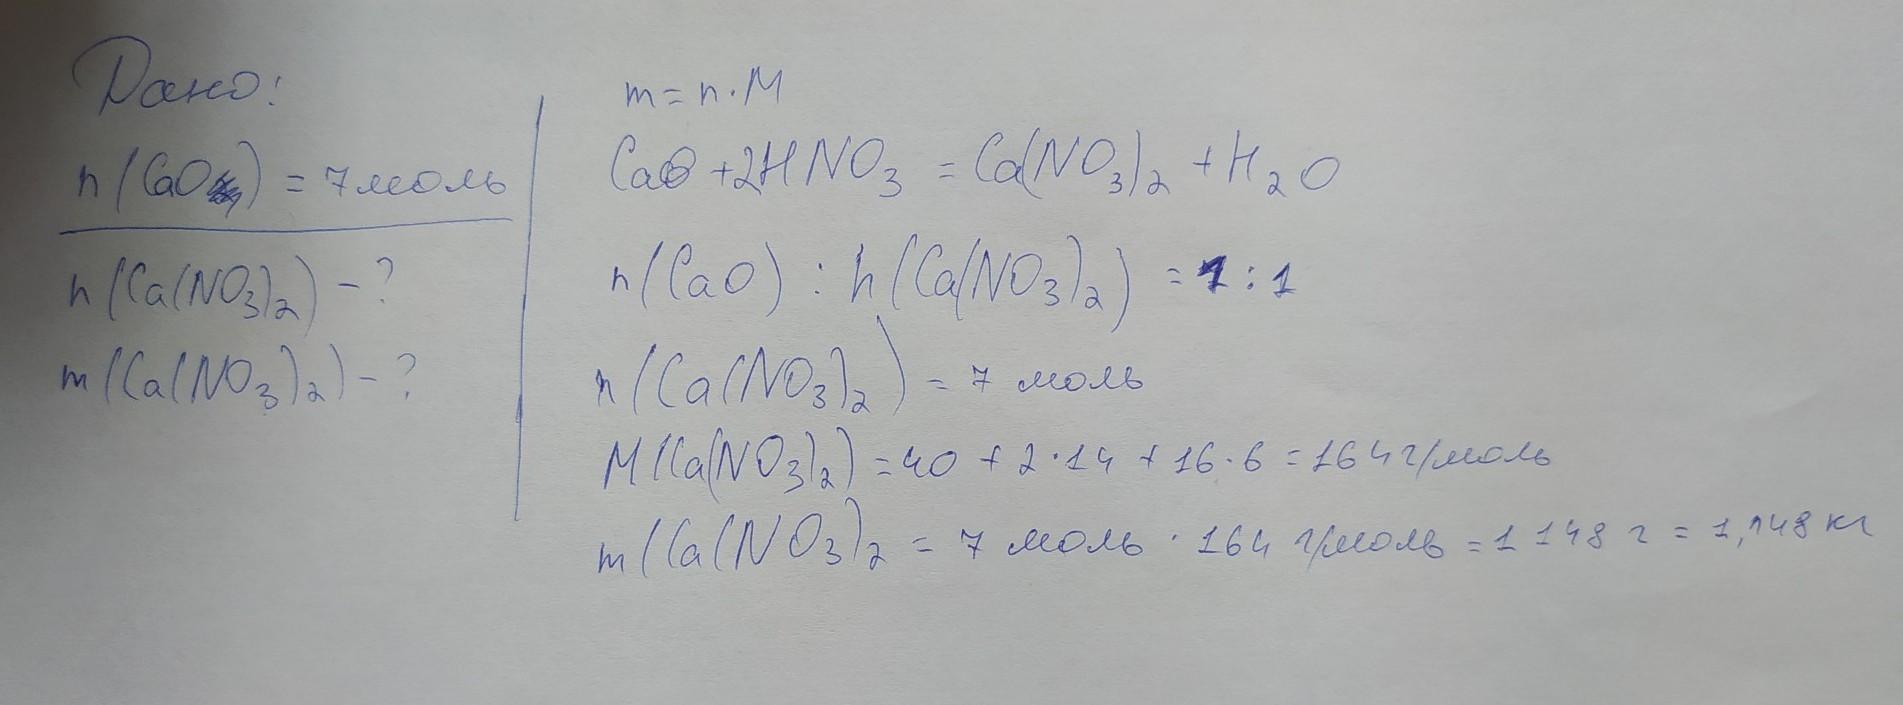 Дано:
n(CaO) = 7 моль
n(Ca(NO3)2) - ?
m(Ca(NO3)2) - ?
m = n · M
CaO + 2HNO3 = Ca(NO3)2 + H2O
n(CaO) : n(Ca(NO3)2) = 1 : 1
n(Ca(NO3)2) = 7 моль
M(Ca(NO3)2) = 40 + 2 · 14 + 16 · 6 = 164 г/моль
m(Ca(NO3)2 = 7 моль · 164 г/моль = 1 148 г = 1,148 кг